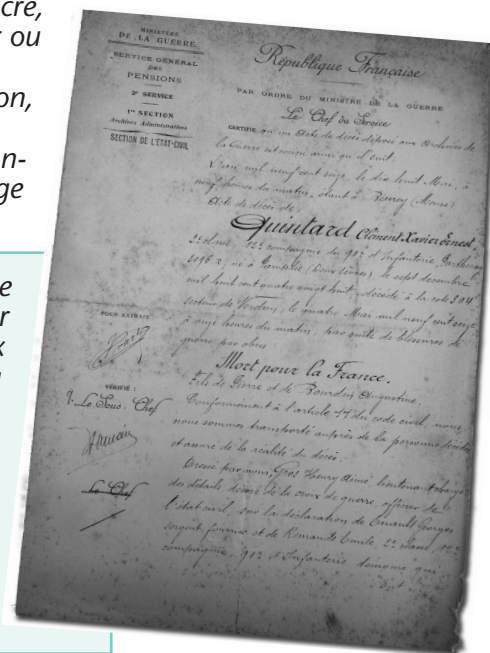 cre,
ou
on,
an-
ge
e
r
x
MINISTÈRE
DE LA GUERRE
SERVICE GÉNÉRAL
DES
PENSIONS
2e SERVICE
1re SECTION
Archives Administratives
SECTION DE L'ÉTAT-CIVIL
République Française
PAR ORDRE DU MINISTRE DE LA GUERRE
Le Chef du Service
CERTIFIE qu'un Acte de décès déposé aux Archives de
la Guerre est conçu ainsi qu'il suit.
L'an mil neuf cent seize, le dix huit Mai, à
neuf heures du matin, étant à (Meuse)
Acte de décès de
Quintard Clément Xavier Ernest
2e classe, 12e compagnie du 90e d'Infanterie,
né à (Deux Sèvres), le sept décembre
mil huit cent quatre vingt huit, décédé à la cote 304
secteur de Verdun, le quatre Mai mil neuf cent seize
à onze heures du matin, par suite de blessures de
guerre par obus
Mort pour la France.
Fils de Pierre et de Bourdin Augustine.
Conformément à l'article 77 du code civil, nous
nous sommes transporté auprès de la personne décédée
et assuré de la réalité du décès.
Dressé par nous, Gros Henry Aimé, lieutenant chargé
des détails, décoré de la croix de guerre, officier de
l'état civil, sur la déclaration de Georges
sergent fourrier et de Emile, 22 ans, 12e
compagnie, 90e d'Infanterie témoins qui
ont
POUR EXTRAIT
VÉRIFIÉ :
Le Sous-Chef
Le Chef